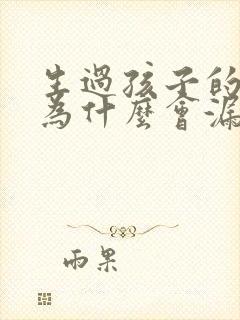 生過孩子的
為什麼會漏
雨果